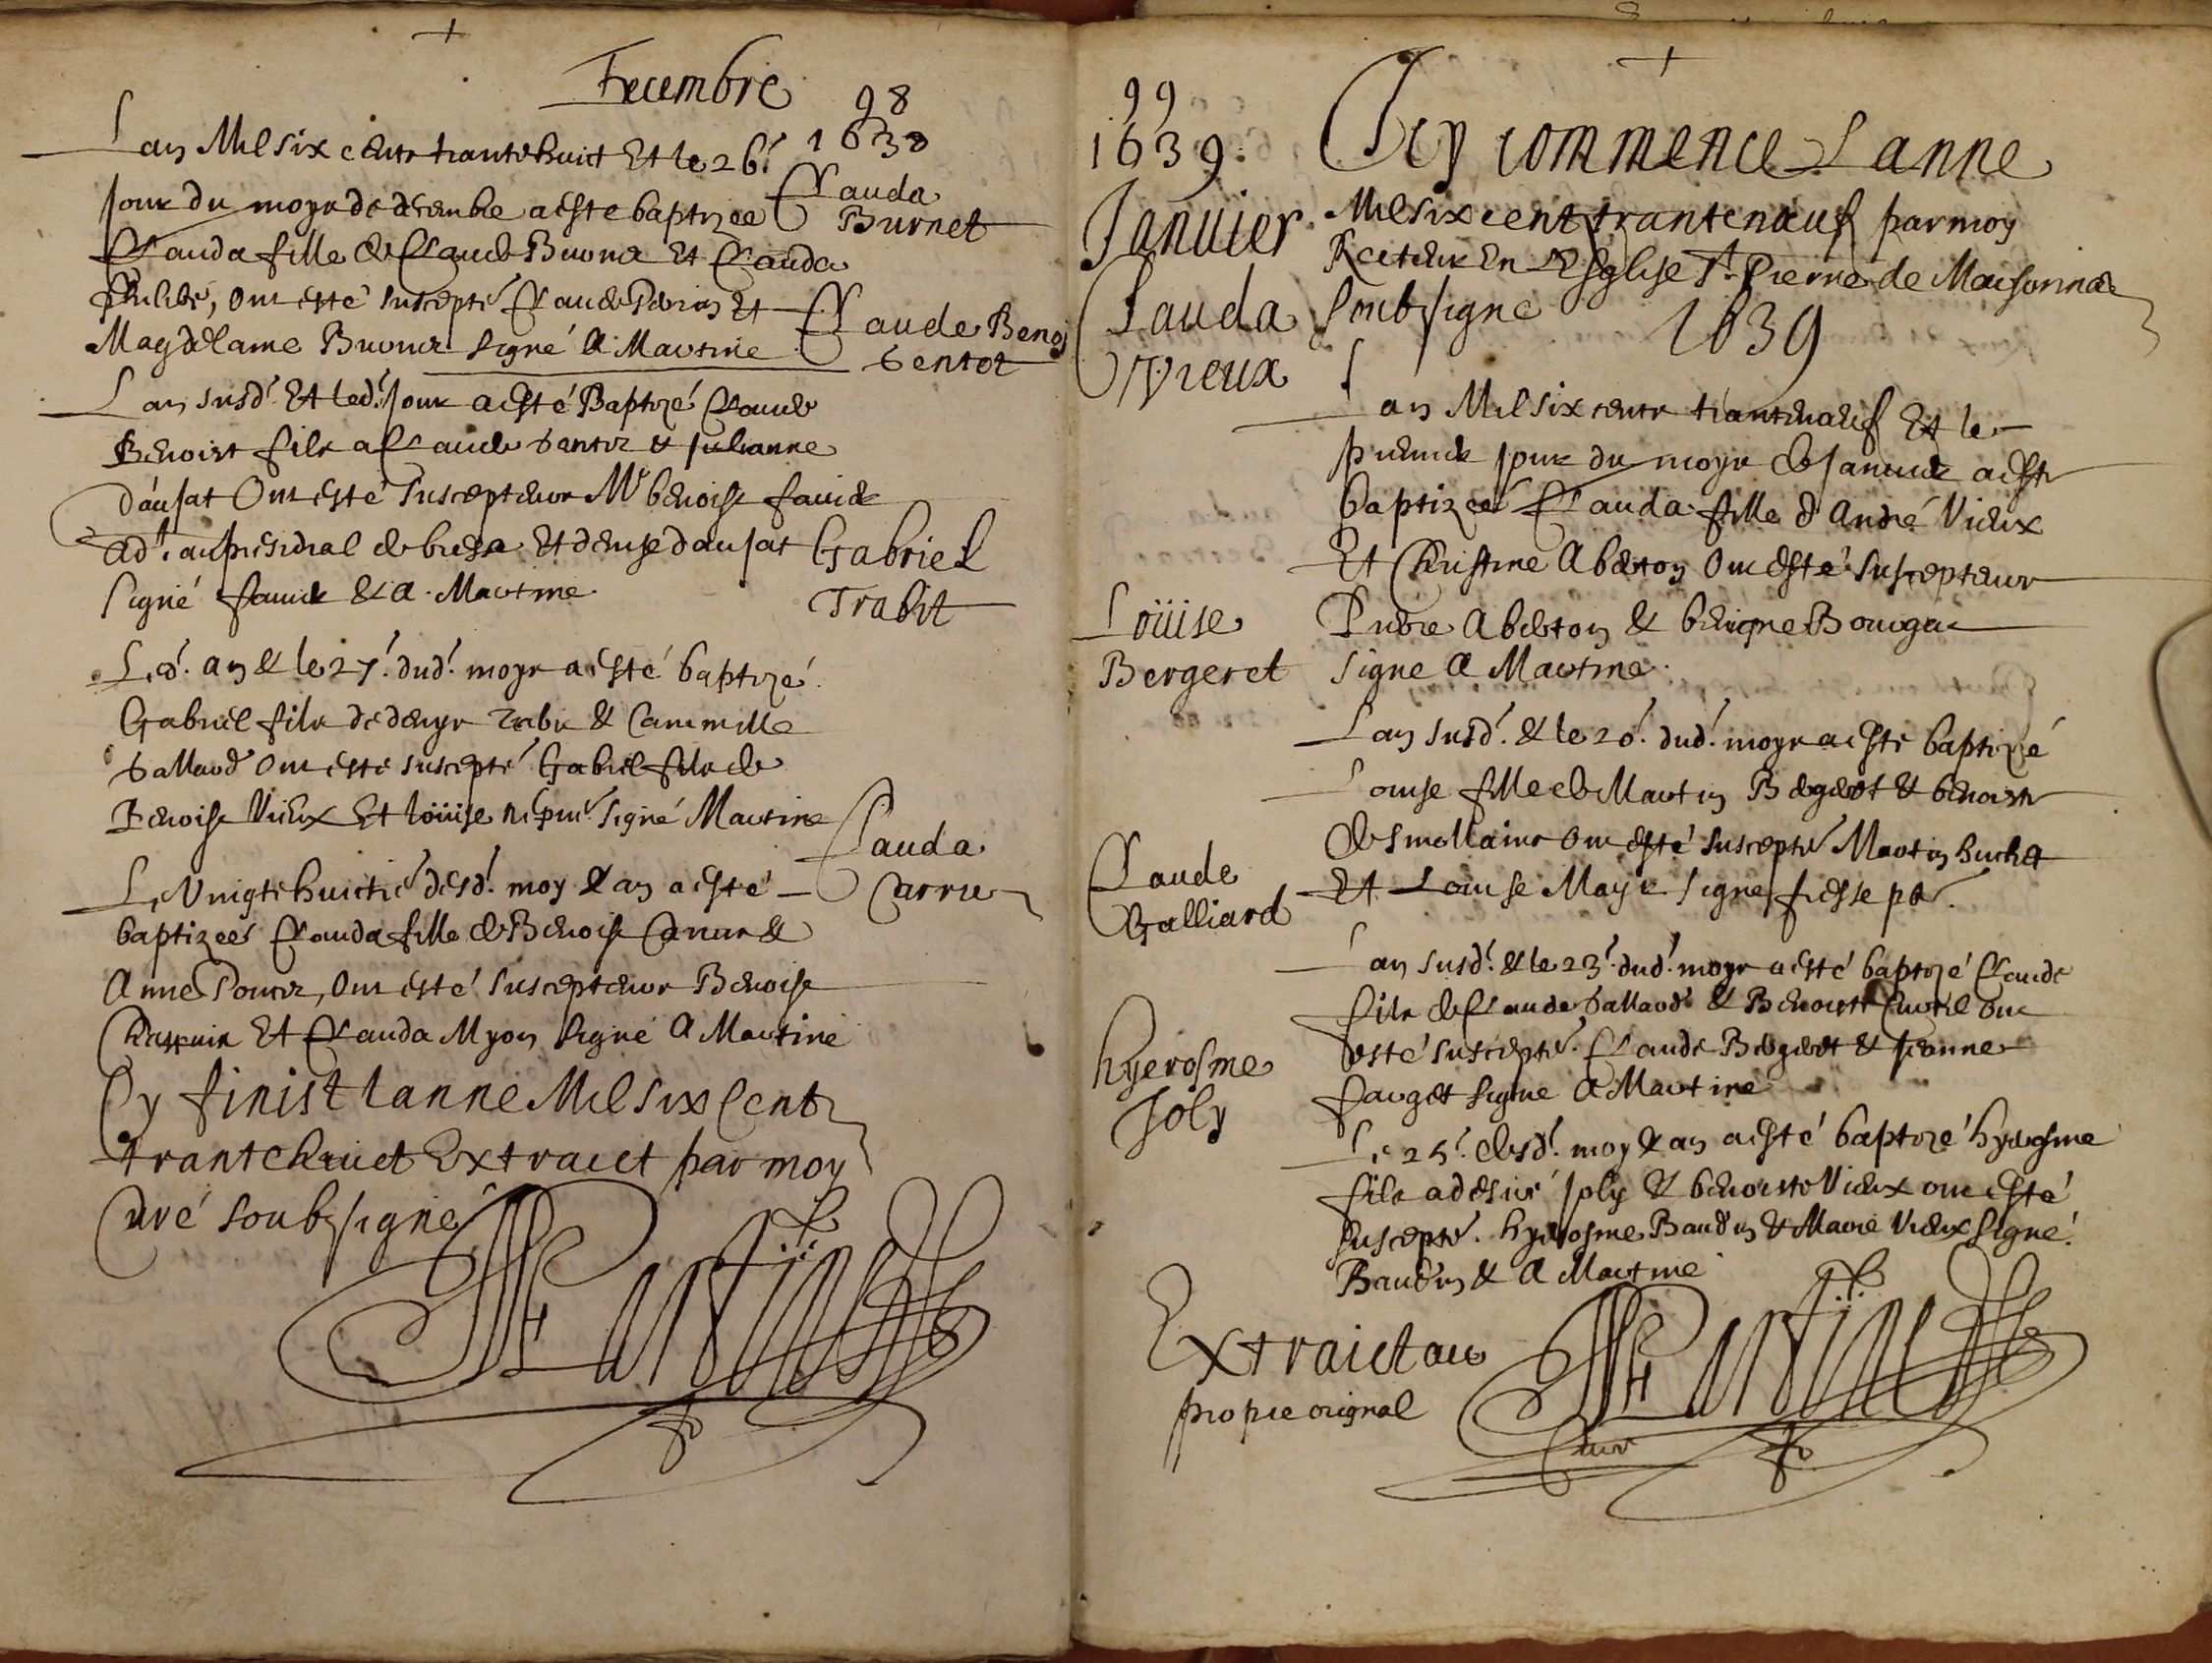 Decembre
98
1638
Lan Mil six centz trante huict Et le 26.e
Jour du moys de decembre a esté baptizee
Clauda fille de Claude Burnet Et Clauda
ont esté suscepte.
Magdelaine Burnet signé A. Martine
Clauda
Burnet
Lan susd. Et led. Jour a esté Baptizé Claude
Benoist filz a Claude Gentet & Julianne
daujat Ont esté suscepteurs Me benoist favier
adt. au presidial de bresse Et denyse daujat
Signé favier & A. Martine
Claude Benoi
Gentot
Led. an & le 27.e dud. moys a esté baptizé
Gabriel filz de denys Trabit & Cammille
Gallard Ont esté suscepte. Gabriel filz de
Benoist Vieux Et Loüise signé Martine
Gabriel
Trabit
Le Vingt huictie. desd. moy & an a esté
baptizee Clauda fille de Benoist Carrier &
Anne Poncet, Ont esté suscepteurs Benoist
Et Clauda Myon signé A Martine
Clauda
Carrie
Cy finist lanne Mil six Cent
trantehuict Extraict par moy
Curé soubsigné
Martine
99
1639.
Janvier
Icy commence Lanne
Mil six cent trantenœuf par moy
Recteur En LEsglise St. Pierre de Maisonnas
soubsigné
1639
Clauda
Vieux
Lan Mil six centz trantenœuf Et le
premier jour du moys de Janvier a esté
baptizeé Clauda fille d'André Vieux
Et Christine Aberton Ont esté suscepteurs
Pierre Aberton & benigne
signe A Martine
Loüise
Bergeret
Lan susd. & le 20.e dud. moys a esté baptizeé
Louise fille de Martin Bergeret & benoiste
desmollains ont esté suscepte. Martin huchet
Et Louise signe
Claude
Galliard
Lan susd. & le 23.e dud. moys a esté baptizé Claude
filz de Claude Gallard & Benoiste Curtil Ont
esté suscepte. Claude Bergeret & Jeanne
farget signe A Martine
hyerosme
Joly
Le 25.e desd. moy & an a esté baptizé hyerosme
filz a desiré Joly & benoiste Vieux ont esté
suscepte. hyerosme Baudin & Marie Vieux signé
Baudin & A Martine
Extraict au
propre orignal
Martine
Curé